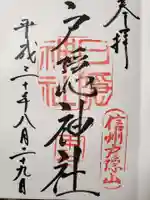 奉拝
戸隠神社
平成三十年八月二十九日
信州戸隠山